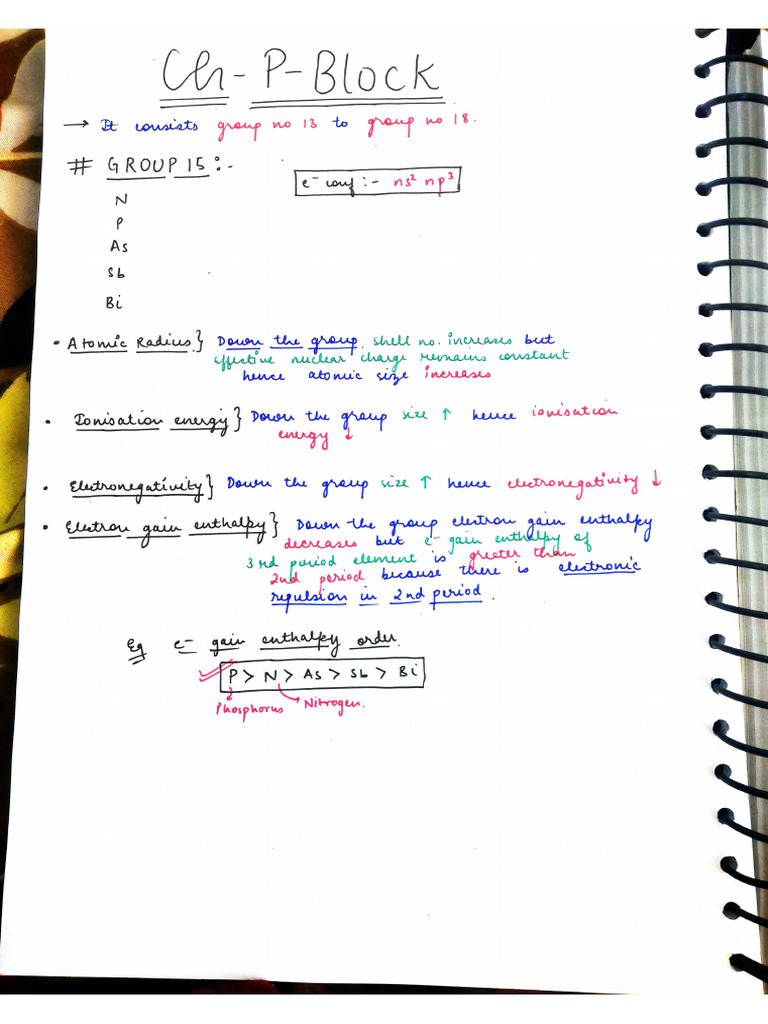 Ch - P - Block
→ It consists group no 13 to group no 18.
# GROUP 15 :-
e⁻ conf :- ns² np³
N
P
As
Sb
Bi
• Atomic Radius} Down the group shell no. increases but
effective nuclear charge remains constant
hence atomic size increases
• Ionisation energy} Down the group size ↑ hence ionisation
energy ↓
• Electronegativity} Down the group size ↑ hence electronegativity ↓
• Electron gain enthalpy} Down the group electron gain enthalpy
decreases but e⁻ gain enthalpy of
3rd period element is greater than
2nd period because there is electronic
repulsion in 2nd period.
Eg e⁻ gain enthalpy order.
P > N > As > Sb > Bi
Phosphorus Nitrogen.